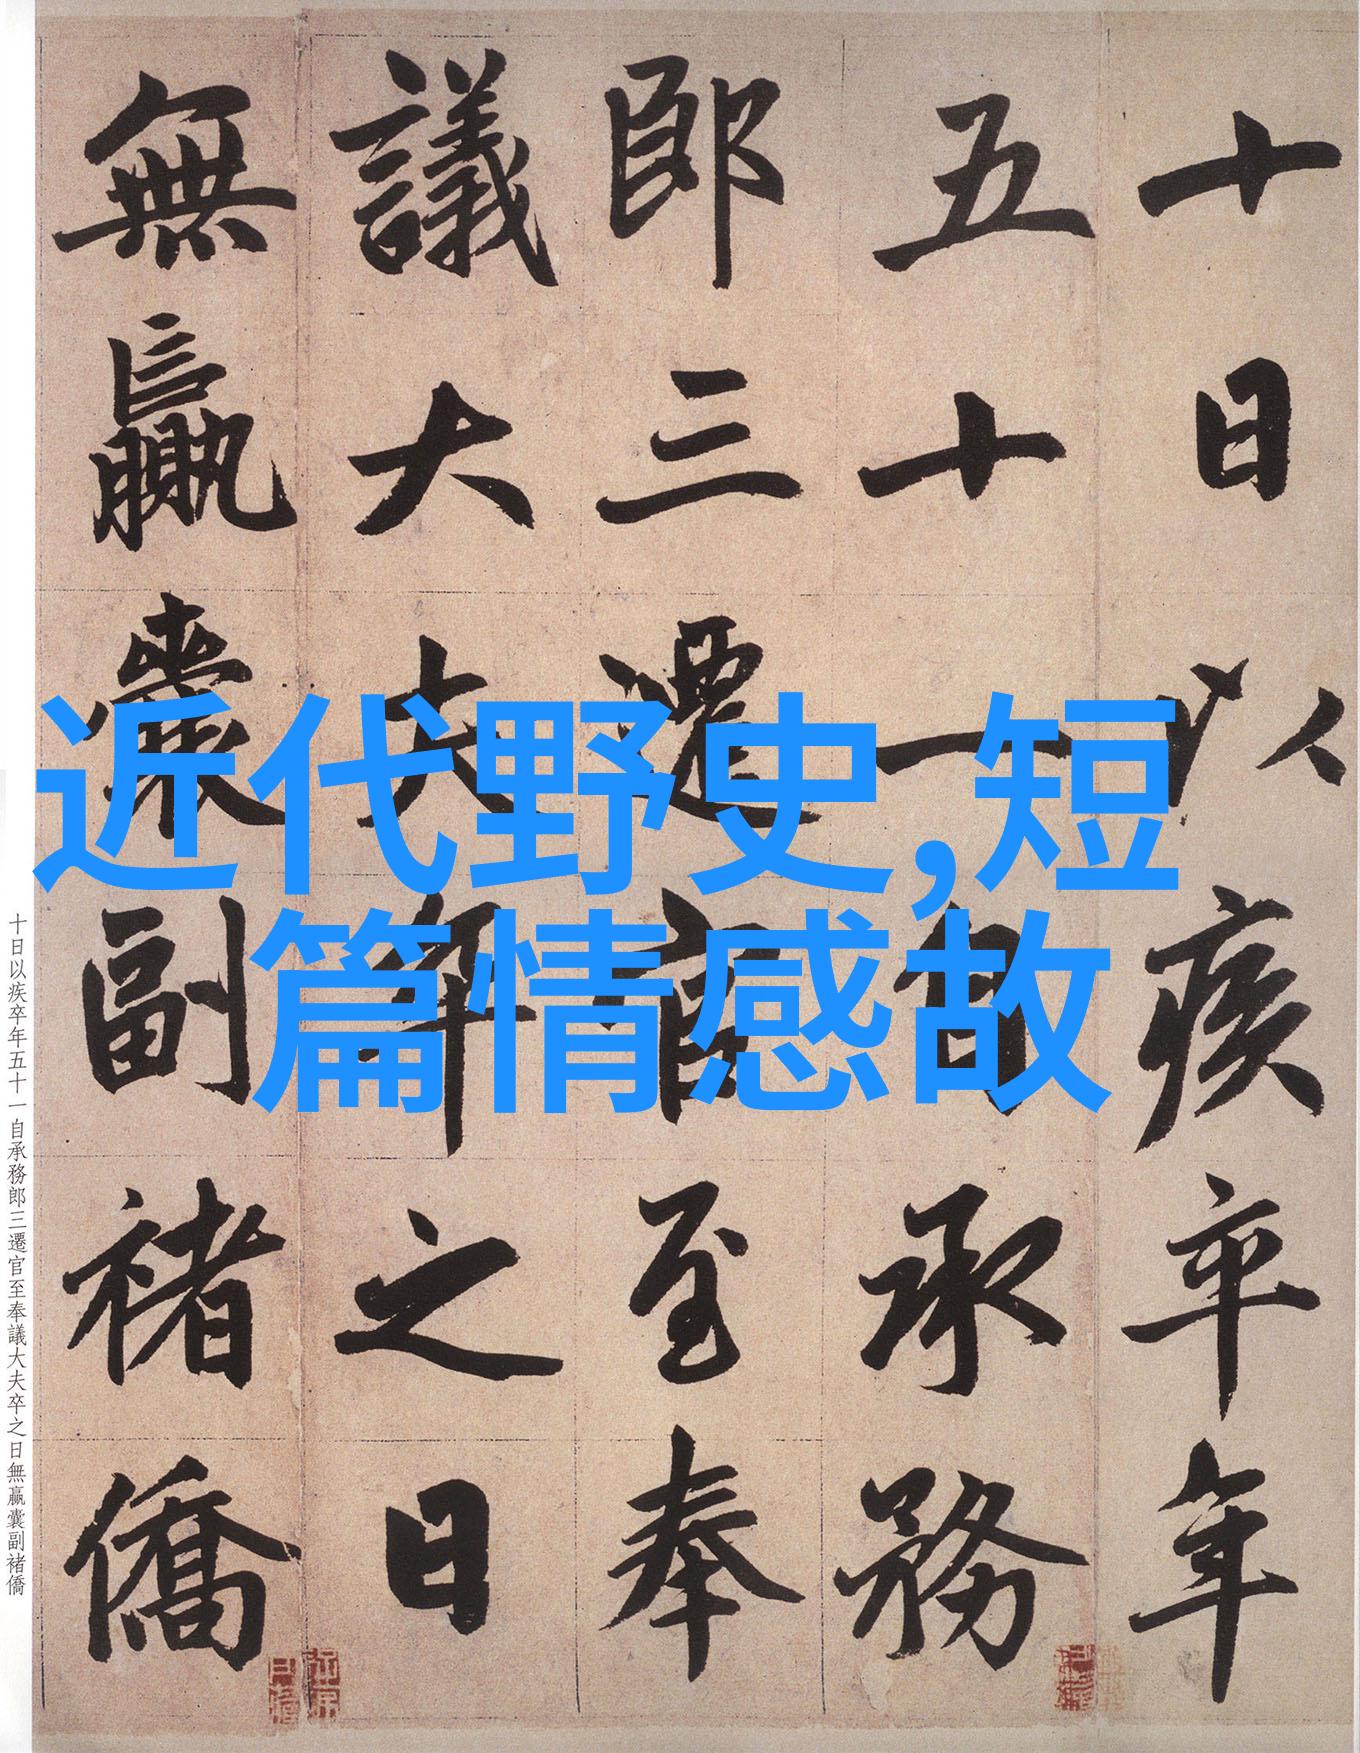 十日以疾卒年
五十一自承務
郎三遷官至奉
議大夫卒之日
無贏囊副褚僑
近代野史,短
篇情感故
十日以疾卒年五十一自承務郎三遷官至奉議大夫卒之日無贏囊副褚僑